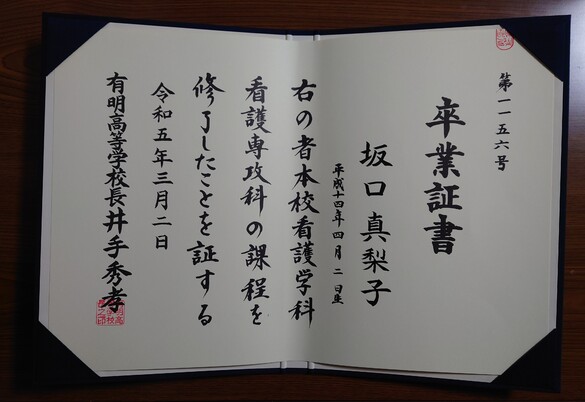 第一一五六号
卒業証書
坂口真梨子
平成十四年四月二日生
右の者本校看護学科
看護専攻科の課程を
修了したことを証する
令和五年三月二日
有明高等学校長井手秀孝